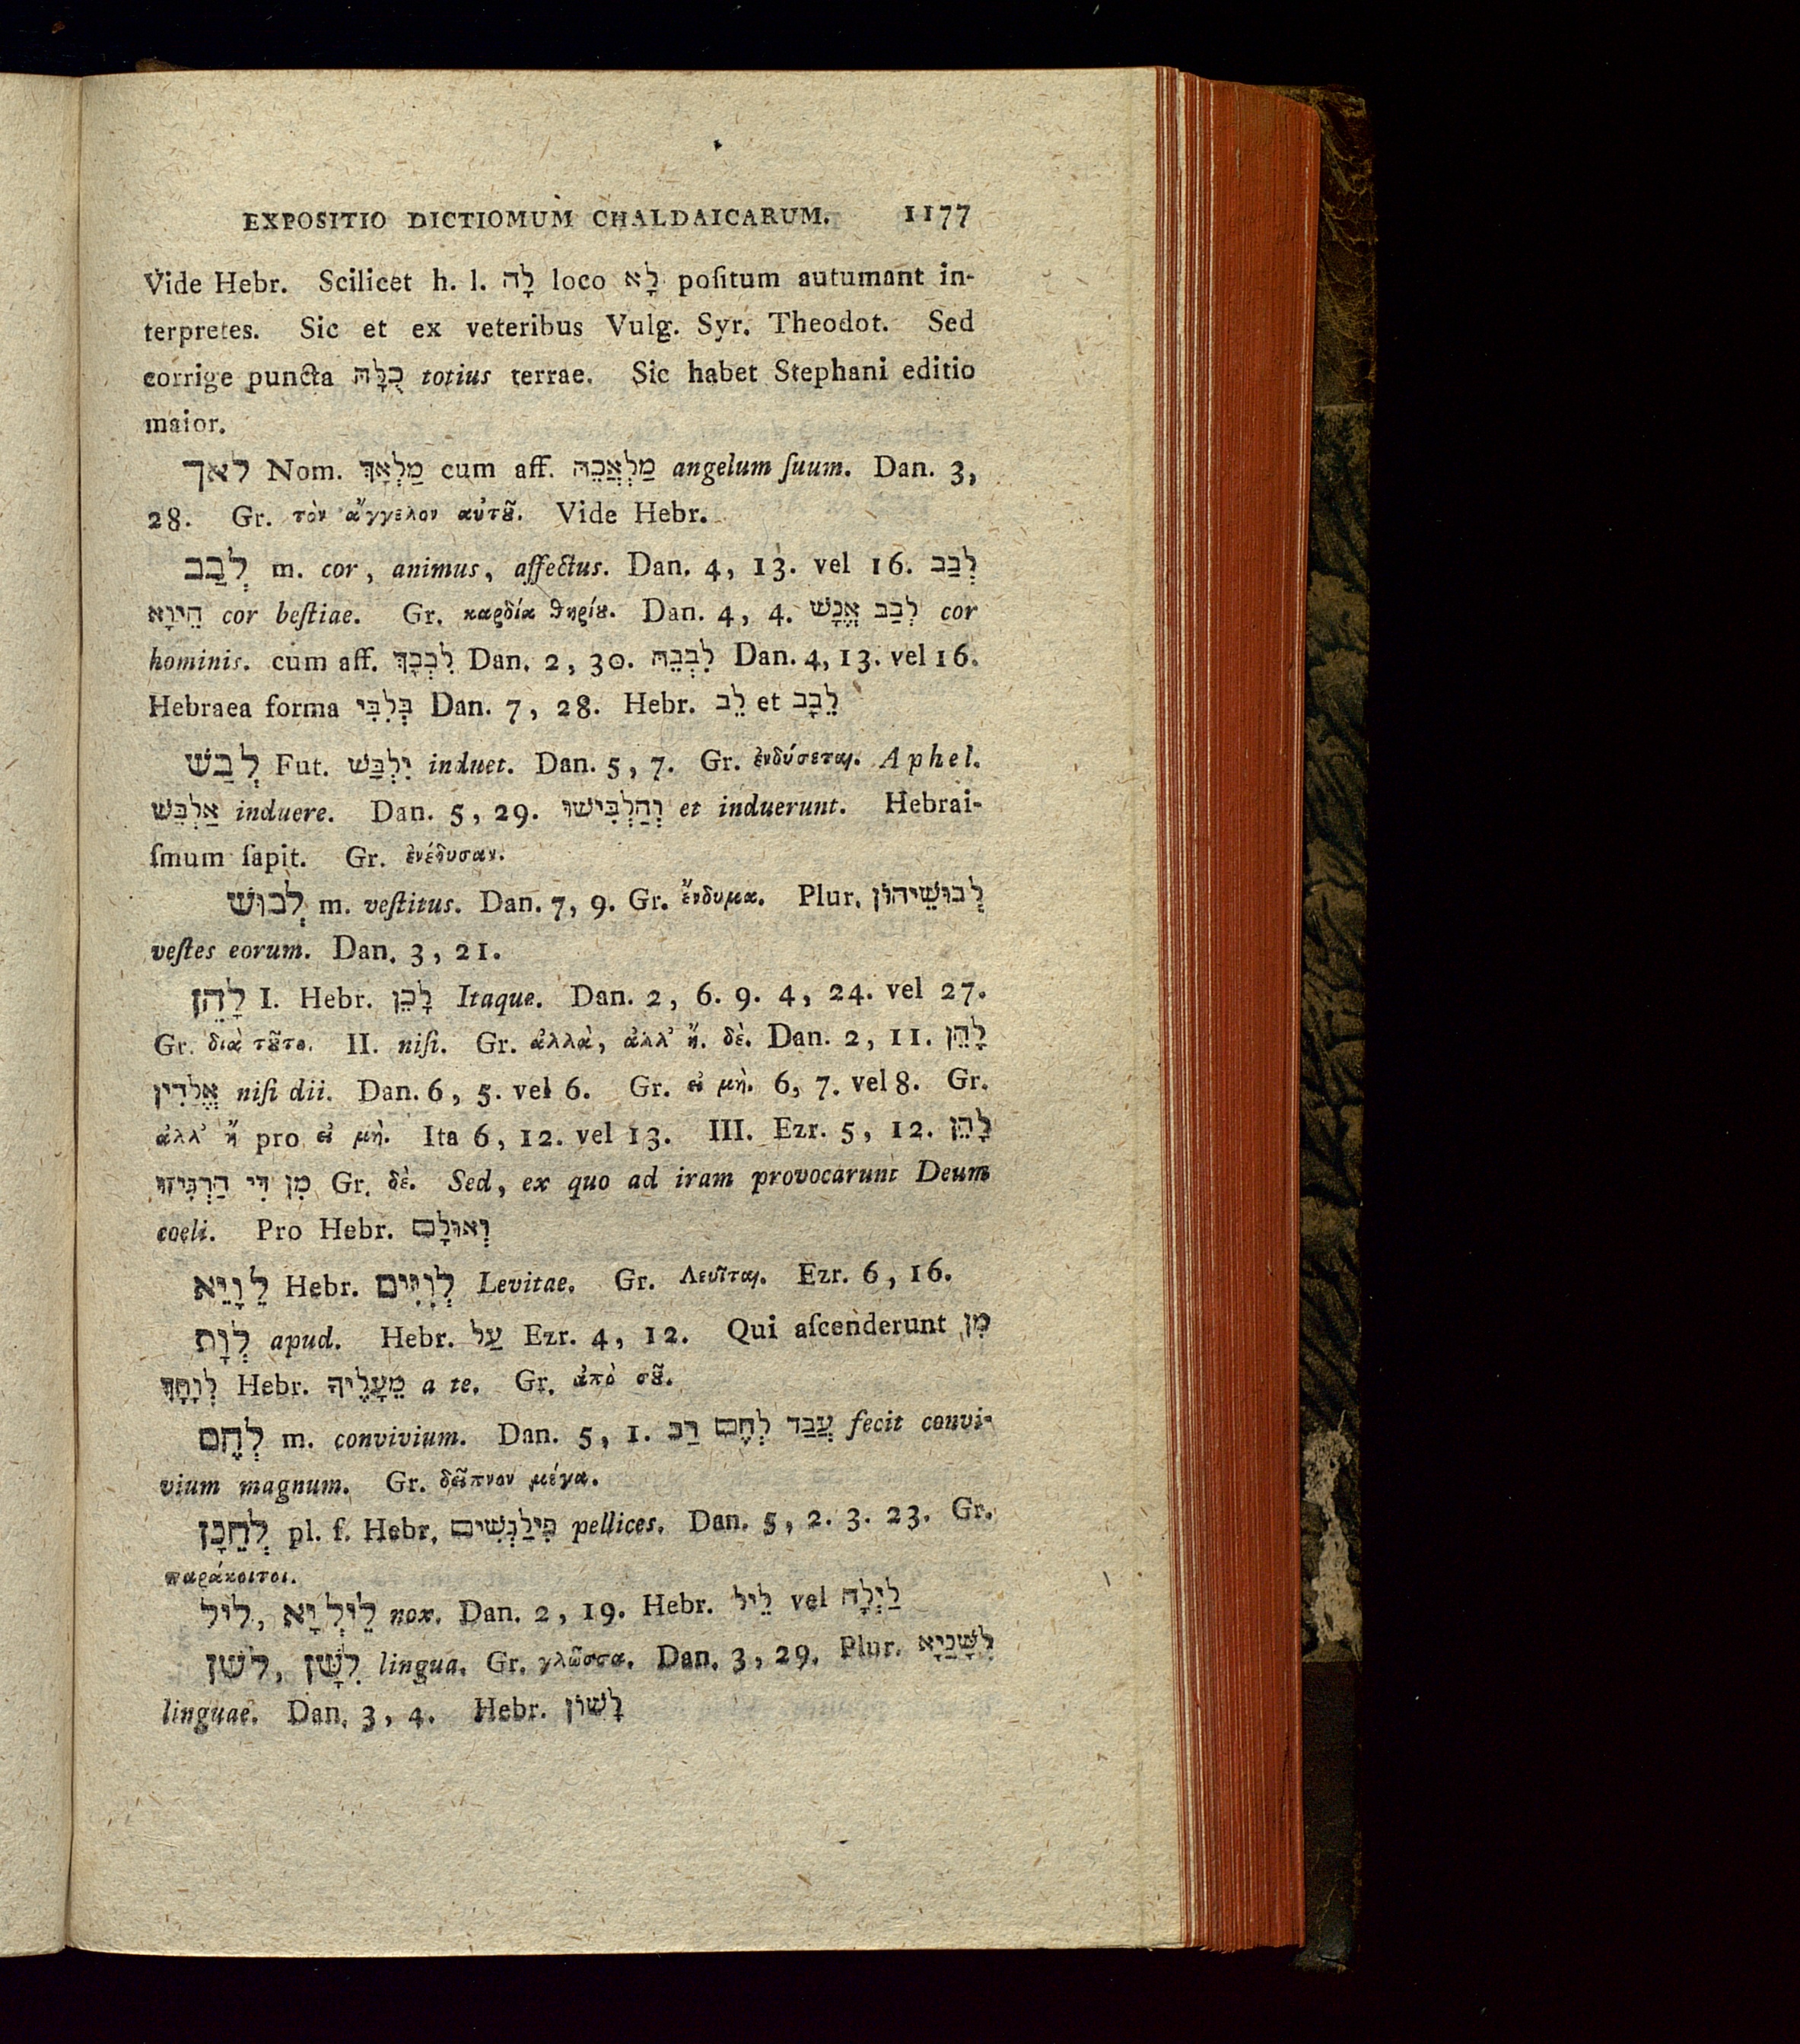 EXPOSITIO DICTIOMUM CHALDAICARUM. 1177
Vide Hebr. Scilicet h. l. לָה loco לָא poſitum autumant in-
terpretes. Sic et ex veteribus Vulg. Syr. Theodot. Sed
corrige puncta כֻּלָּהּ totius terrae. Sic habet Stephani editio
maior.
לאך Nom. מַלְאָךְ cum aff. מַלְאֲכֵהּ angelum ſuum. Dan. 3,
28. Gr. τὸν ἄγγελον αὐτȣ͂. Vide Hebr.
לְבַב m. cor, animus, affectus. Dan. 4, 13. vel 16. לְבַב
הֵיוָא cor beſtiae. Gr. καρδία θηρίȣ. Dan. 4, 4. לְבַב אֱנָשׁ cor
hominis. cum aff. לִבְבָךְ Dan. 2, 30. לִבְבֵהּ Dan. 4, 13. vel 16.
Hebraea forma בְּלִבִּי Dan. 7, 28. Hebr. לֵב et לֵבָב
לְבַשׁ Fut. יִלְבַּשׁ induet. Dan. 5, 7. Gr. ἐνδύσεται. Aphel.
אַלְבֵּשׁ induere. Dan. 5, 29. וְהַלְבִּישׁוּ et induerunt. Hebrai-
ſmum ſapit. Gr. ἐνέδυσαν.
לְבוּשׁ m. veſtitus. Dan. 7, 9. Gr. ἔνδυμα. Plur. לְבוּשֵׁיהוֹן
veſtes eorum. Dan. 3, 21.
לָהֵן I. Hebr. לָכֵן Itaque. Dan. 2, 6. 9. 4, 24. vel 27.
Gr. διὰ τȣ͂το. II. niſi. Gr. ἀλλὰ, ἀλλ' ἤ. δὲ. Dan. 2, 11. לָהֵן
אֱלָהִין niſi dii. Dan. 6, 5. vel 6. Gr. εἰ μὴ. 6, 7. vel 8. Gr.
ἀλλ' ἤ pro εἰ μὴ. Ita 6, 12. vel 13. III. Ezr. 5, 12. לָהֵן
מִן דִּי הַרְגִּיזוּ Gr. δὲ. Sed, ex quo ad iram provocarunt Deum
coeli. Pro Hebr. וְאוּלָם
לֵוָיֵא Hebr. לְוִיִּים Levitae. Gr. Λευῖται. Ezr. 6, 16.
לְוָת apud. Hebr. עַל Ezr. 4, 12. Qui aſcenderunt מִן
לְוָתָךְ Hebr. מֵעָלֶיךָ a te. Gr. ἀπὸ σȣ͂.
לְחֶם m. convivium. Dan. 5, 1. עֲבַד לְחֶם רַב fecit convi-
vium magnum. Gr. δεῖπνον μέγα.
לְחֵנָן pl. f. Hebr. פִּילַגְשִׁים pellices. Dan. 5, 2. 3. 23. Gr.
παράκοιτοι.
ליל, לֵילְיָא nox. Dan. 2, 19. Hebr. לֵיל vel לַיְלָה
לשׁן, לִשָּׁן lingua. Gr. γλῶσσα. Dan. 3, 29. Plur. לִשָּׁנַיָּא
linguae. Dan. 3, 4. Hebr. לָשׁוֹן